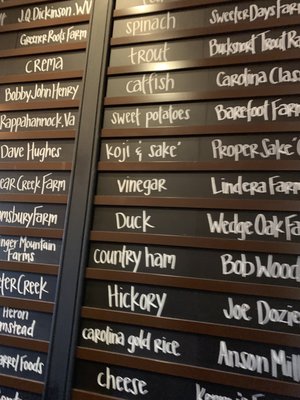 J.Q. Dickinson, WV
Greener Roots Farm
Crema
Bobby John Henry
Rappahannock, Va
Dave Hughes
Creek Farm
Farm
Mountain
Farms
Creek
Heron
Foods
spinach
Sweeter Days Farm
trout
Bucksnort Trout
catfish
Carolina
sweet potatoes
Barefoot Farm
koji & sake
Proper Sake
vinegar
Lindera Farm
Duck
Wedge Oak
country ham
Bob
Hickory
Joe
carolina gold rice
Anson
cheese